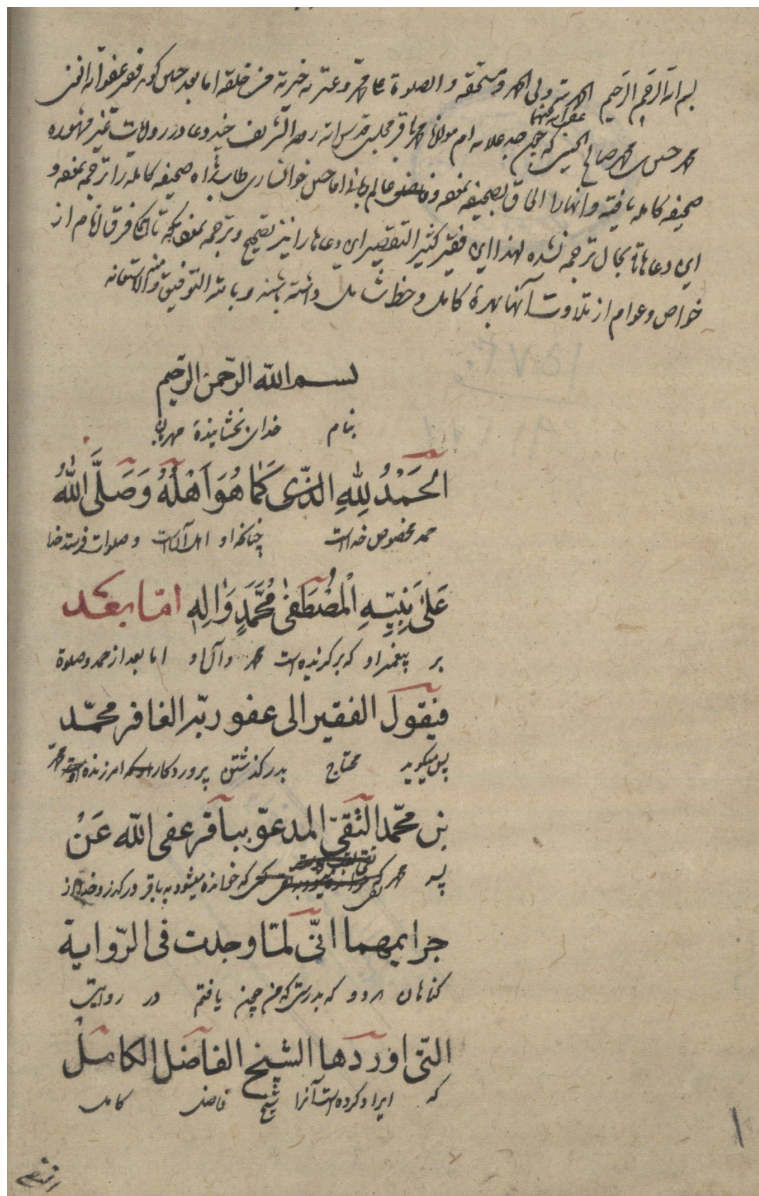 بسم الله الرحمن الرحیم الحمد لله ولی الحمد و مستحقه و الصلوة علی محمد و عترته خیرته من خلقه اما بعد چنین گوید فقیر عفو اله الغنی
محمد حسین بن محمد صالح الحسینی عفی الله عنهما که چون جد علامه ام مولانا محمد باقر مجلسی قدس الله روحه الشریف چند دعا در روایات غیر مشهوره
صحیفه کامله یافته و آنها را الحاق بصحیفه نموده و فاضل عالم ربانی اما حسین خوانساری طاب ثراه صحیفه کامله را ترجمه نموده و
این دعاها تا بحال ترجمه نشده لهذا این فقیر کثیر التقصیر این دعاها را نیز تصحیح و ترجمه نموده که تا کافه انام از
خواص و عوام از تلاوت آنها بهرۀ کامل و حظ شامل داشته باشند و بالله التوفیق و منه الاستعانه
بسم الله الرحمن الرحیم
بنام خدای بخشایندۀ مهربان
الحَمْدُ لِلّهِ الَّذی كَمٰا هُوَ اَهْلُهُ وَصَلَّی اللّٰهُ
حمد مخصوص خداست چنانکه او اهل آنست و صلوات فرستد خدا
عَلیٰ نَبِیِّهِ الْمُصْطَفیٰ مُحَمَّدٍ وَالِهِ امّا بعد
بر پیغمبر او که برگزیده است محمد و آل او اما بعد از حمد و صلوة
فیقول الفقیر الی عفو ربّه الغافر محمّد
پس میگوید محتاج بدر گذشتن پروردگار که امرزنده است محمد
بن محمّد التّقیّ المدعوّ بباقر عفی اللّه عَنْ
پسر محمد تقی که خوانده میشود به باقر درگذرد خدا از
جرایمهما انّی لمّا وجدت فی الرّوایة
گناهان هر دو که بدرستی که من چون یافتم در روایتی
التی اوردها الشیخ الفاضل الکامل
که ایراد کرده است آنرا شیخ فاضل کامل